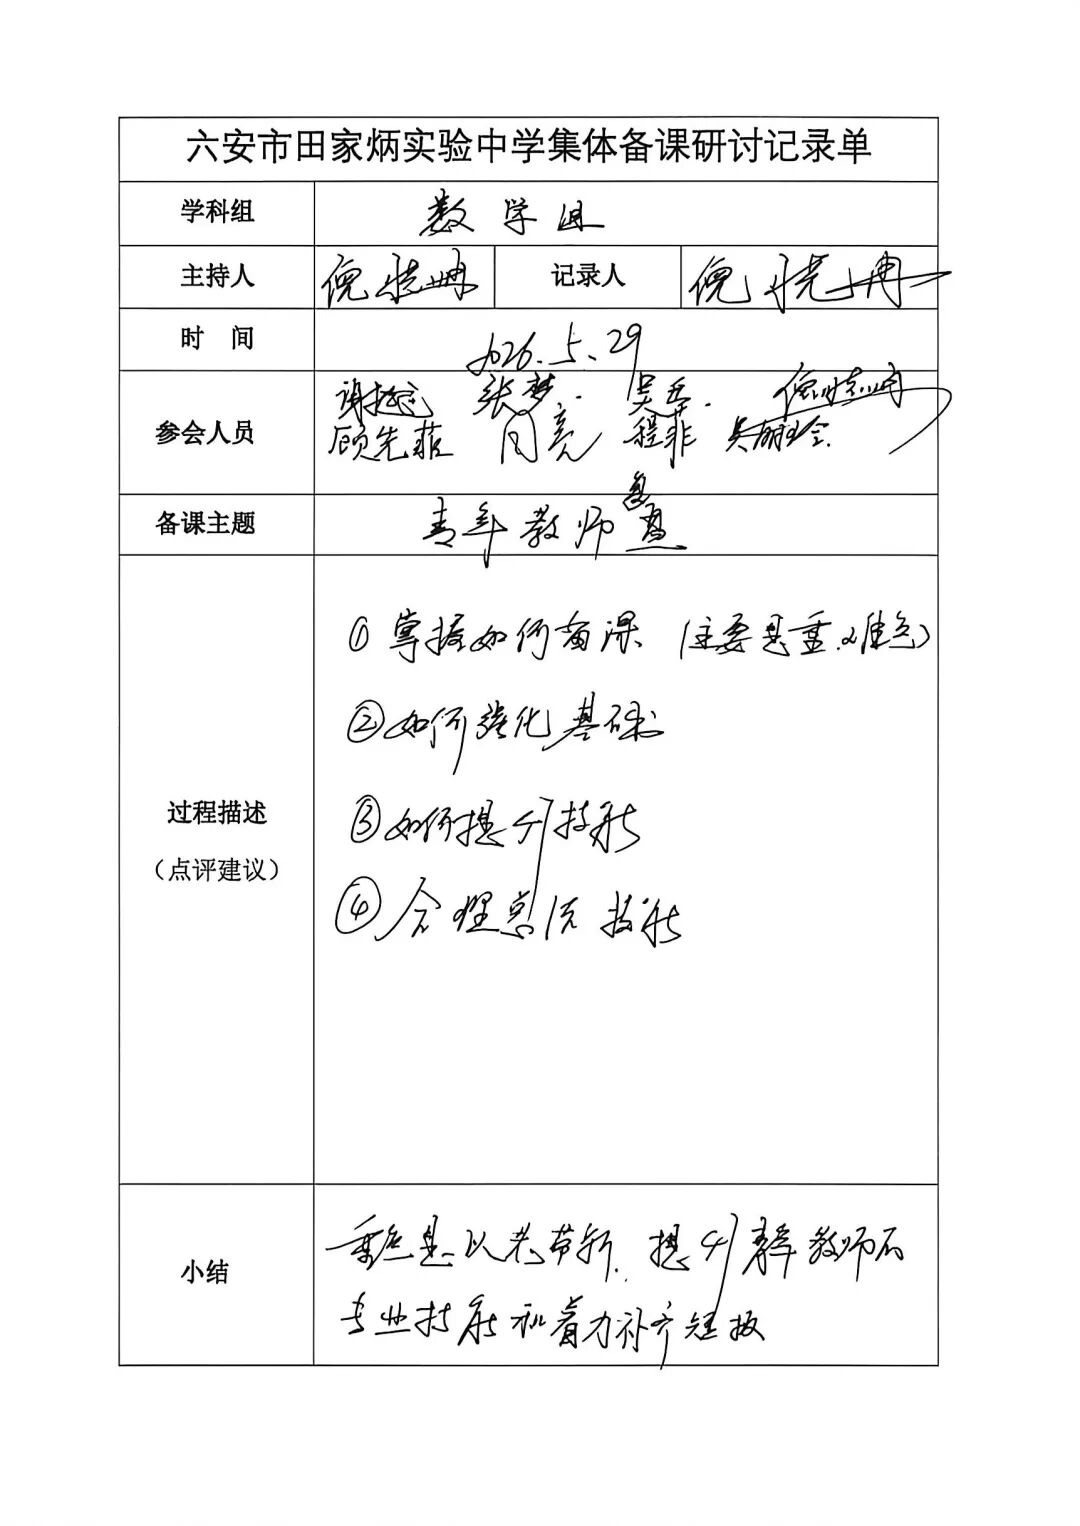 六安市田家炳实验中学集体备课研讨记录单
学科组 数学组
主持人 倪晓冉 记录人 倪晓冉
时 间 2026.5.29
张梦. 吴 .
参会人员 顾先菲 闫亮 程菲 吴
备课主题 青年教师
①掌握如何备课(主要是重.难点)
②如何强化基础
③如何提升技能
过程描述
(点评建议)
④合理 技能
重点是以老带新.提升青年教师的
小结
专业技能和着力补齐短板